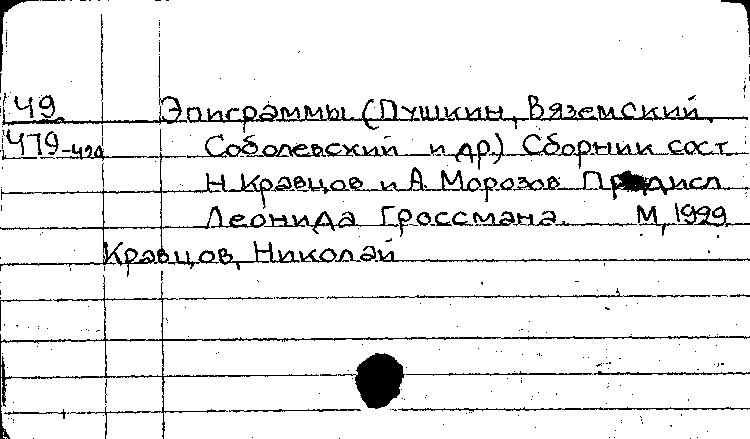 49 Эпиграммы (Пушкин, Вяземский,
479-420 Соболевский и др.) Сборник сост.
Н. Кравцов и А. Морозов Предисл.
Леонида Гроссмана. М, 1999
Кравцов, Николай